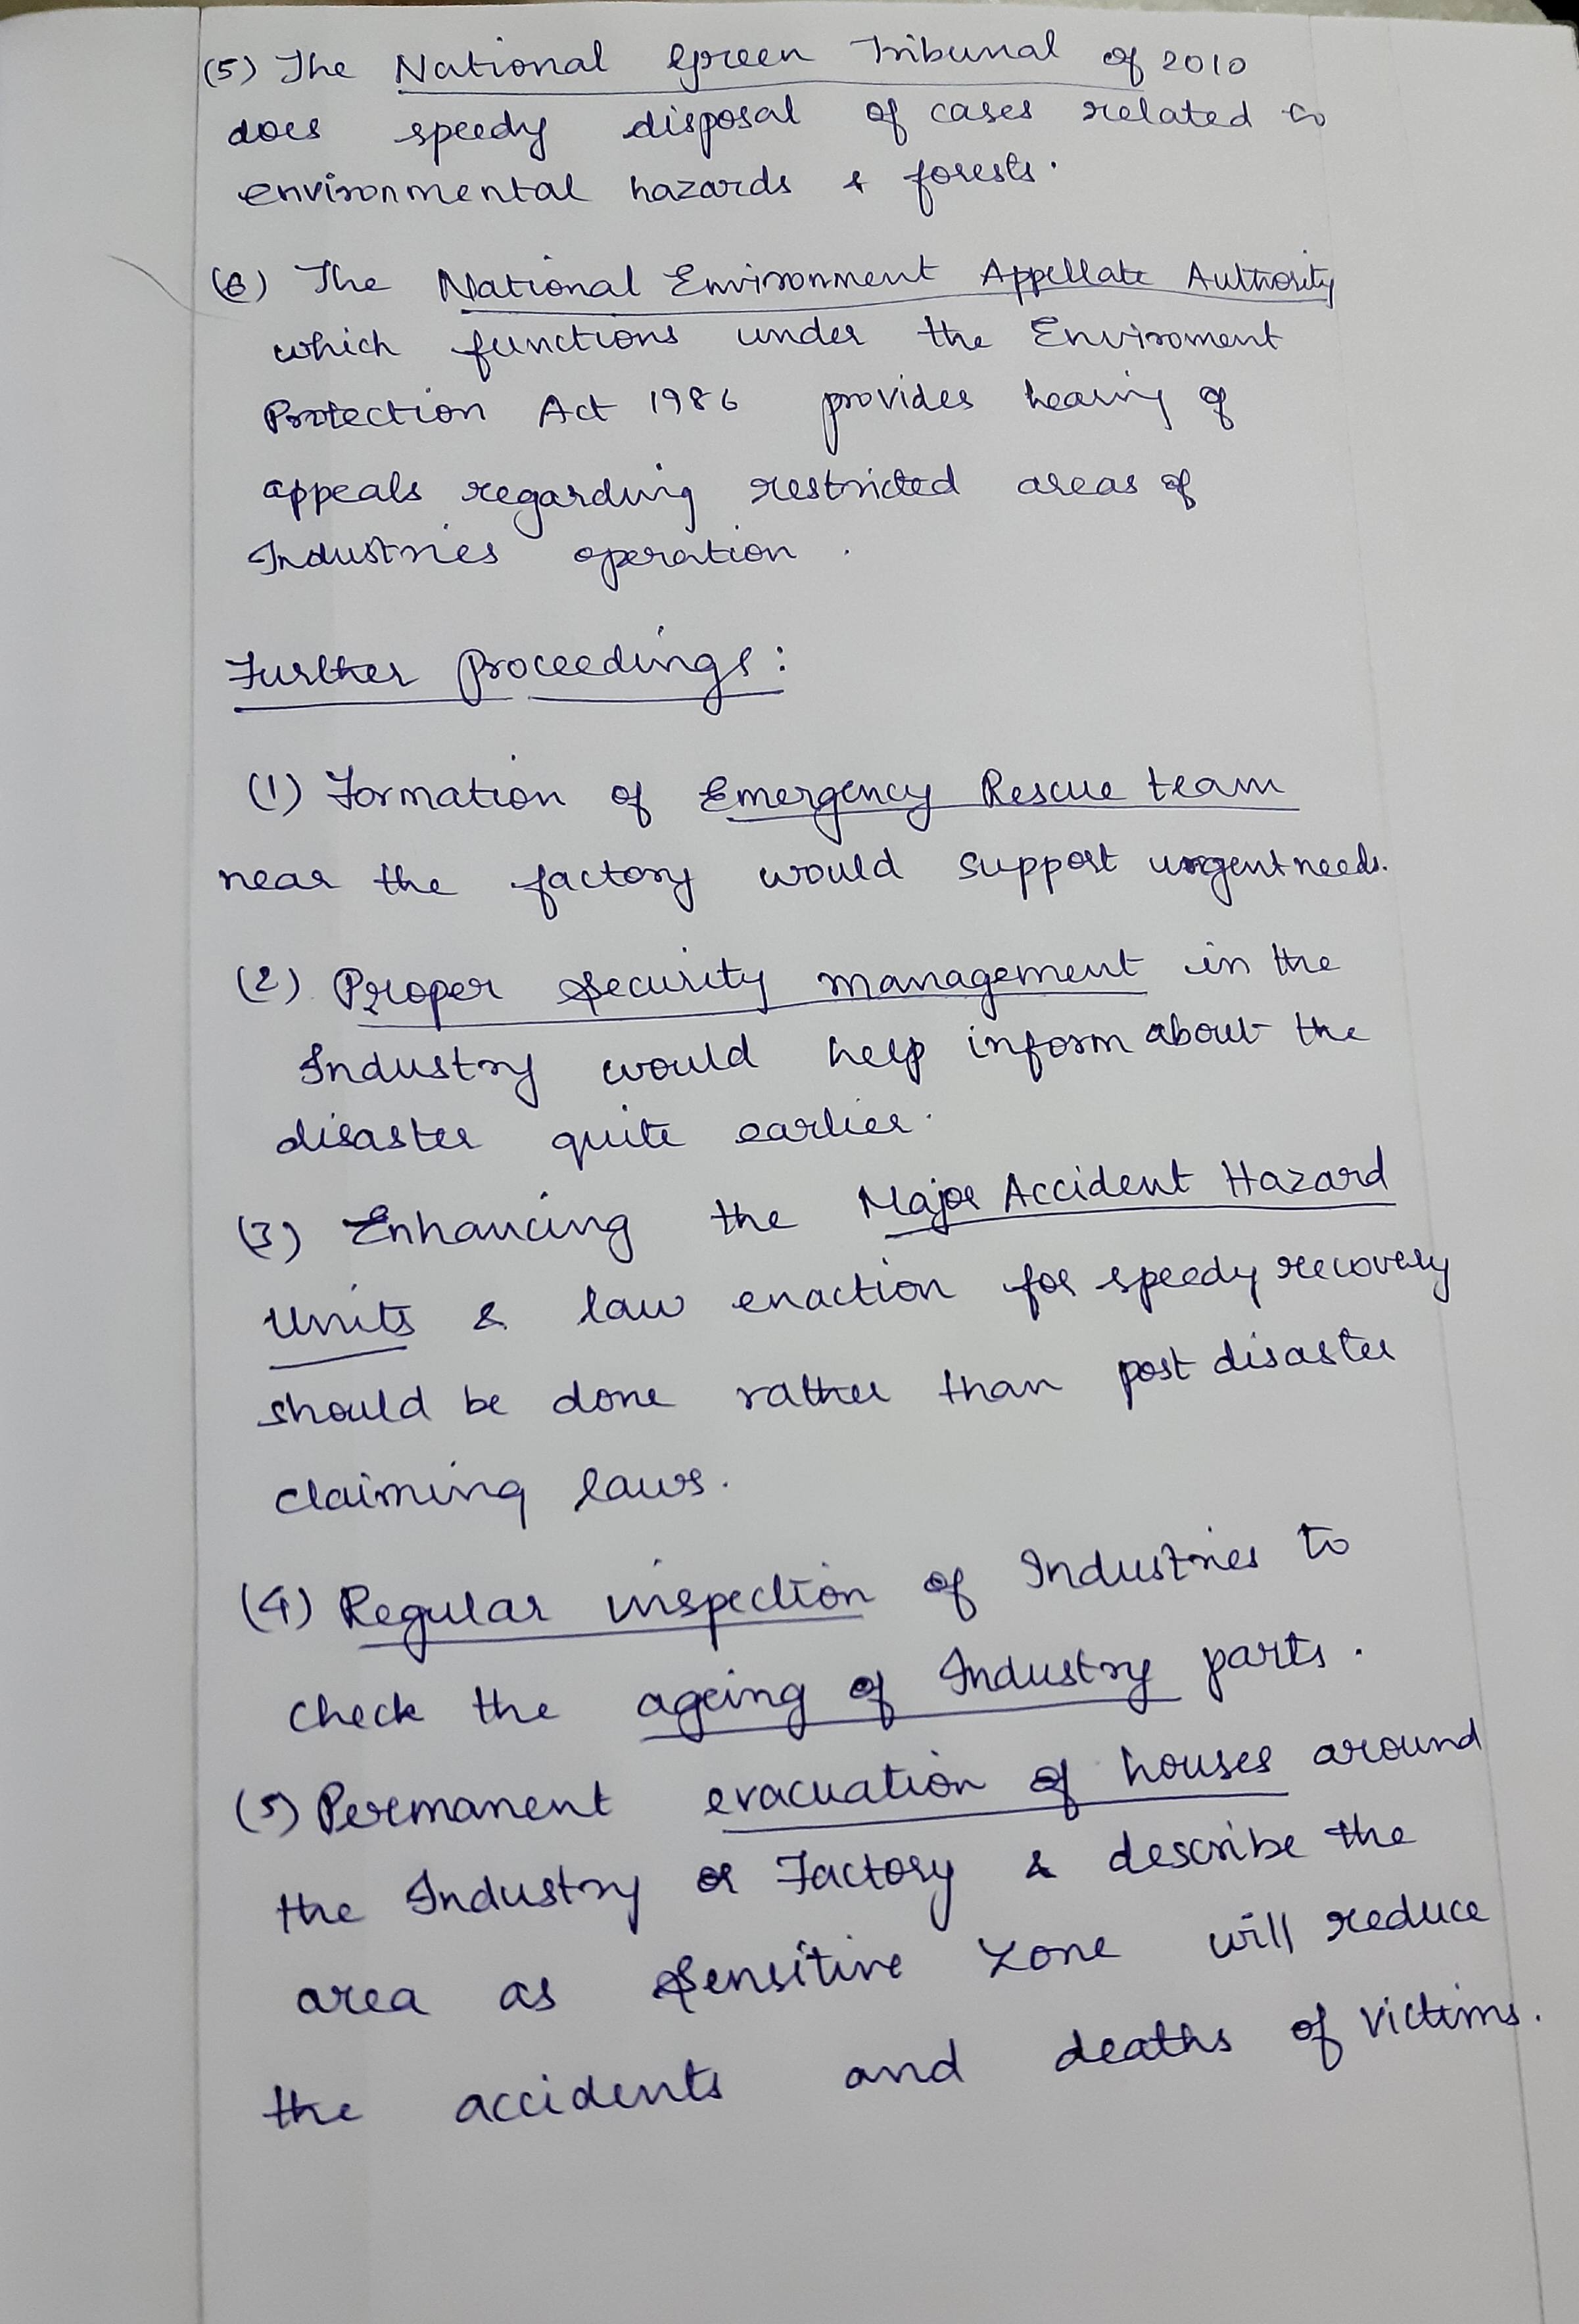 (5) The National Green Tribunal of 2010
does speedy disposal of cases related to
environmental hazards & forests.
(6) The National Environment Appellate Authority
which functions under the Enviroment
Protection Act 1986 provides hearing of
appeals regarding restricted areas of
Industries operation.
Further proceedings:
(1) Formation of Emergency Rescue team
near the factory would support urgent needs.
(2) Proper Security management in the
Industry would help inform about the
disaster quite earlier.
(3) Enhancing the Major Accident Hazard
Units & law enaction for speedy recovery
should be done rather than post disaster
claiming laws.
(4) Regular inspection of Industries to
check the ageing of Industry parts.
(5) Permanent evacuation of houses around
the Industry or Factory & describe the
area as Sensitive Zone will reduce
the accidents and deaths of victims.